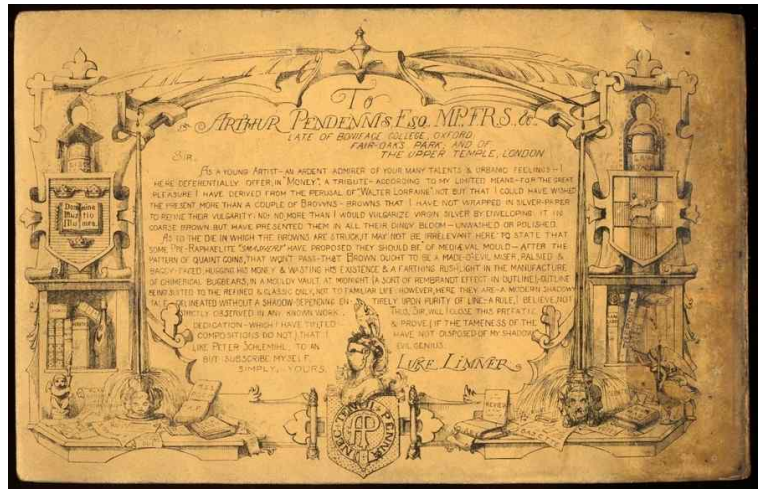 To
ARTHUR PENDENNIS ESQ. M.P.F.R.S. &c.
LATE OF BONIFACE COLLEGE, OXFORD,
FAIR-OAKS PARK, AND OF
THE UPPER TEMPLE, LONDON
SIR,
AS A YOUNG ARTIST—AN ARDENT ADMIRER OF YOUR MANY TALENTS & URBANE FEELINGS—I
HERE DEFERENTIALLY OFFER, IN "MONEY", A TRIBUTE—ACCORDING TO MY LIMITED MEANS—FOR THE GREAT
PLEASURE I HAVE DERIVED FROM THE PERUSAL OF "WALTER LORRAINE" NOT BUT THAT I COULD HAVE WISHED
THE PRESENT MORE THAN A COUPLE OF BROWNS—BROWNS THAT I HAVE NOT WRAPPED IN SILVER-PAPER
TO REFINE THEIR VULGARITY: NO! NO MORE THAN I WOULD VULGARIZE VIRGIN SILVER BY ENVELOPING IT IN
COARSE BROWN. BUT HAVE PRESENTED THEM IN ALL THEIR DINGY BLOOM—UNWASHED OR POLISHED.
AS TO THE DIE IN WHICH THE BROWNS ARE STRUCK, IT MAY NOT BE IRRELEVANT HERE TO STATE THAT
SOME "PRE-RAPHAELITE" HAVE PROPOSED THEY SHOULD BE OF MEDIÆVAL MOULD—AFTER THE
PATTERN OF QUAINT COINS, THAT WON'T PASS—THAT BROWN OUGHT TO BE A MADE-O'-EVIL MISER, PALSIED &
BAGGY-FACED, HUGGING HIS MONEY & WASTING HIS EXISTENCE & A FARTHING RUSH-LIGHT IN THE MANUFACTURE
OF CHIMERICAL BUGBEARS, IN A MOULDY VAULT AT MIDNIGHT (A SORT OF REMBRANDT EFFECT IN OUTLINE)—OUTLINE
BEING SUITED TO THE REFINED & CLASSIC ONLY, NOT TO FAMILIAR LIFE: HOWEVER, HERE THEY ARE—A MODERN SHADOW
TALE—DELINEATED WITHOUT A SHADOW—DEPENDING ENTIRELY UPON PURITY OF LINE—A RULE, I BELIEVE, NOT
STRICTLY OBSERVED IN ANY KNOWN WORK. THUS, SIR, WILL I CLOSE THIS PREFATIC
DEDICATION—WHICH I HAVE TILTED & PROVE (IF THE TAMENESS OF THE
COMPOSITIONS DO NOT) THAT I HAVE NOT DISPOSED OF MY SHADOW
LIKE PETER SCHLEMIHL, TO AN EVIL GENIUS.
BUT SUBSCRIBE MYSELF,
SIMPLY, YOURS,
LUKE LIMNER
AP